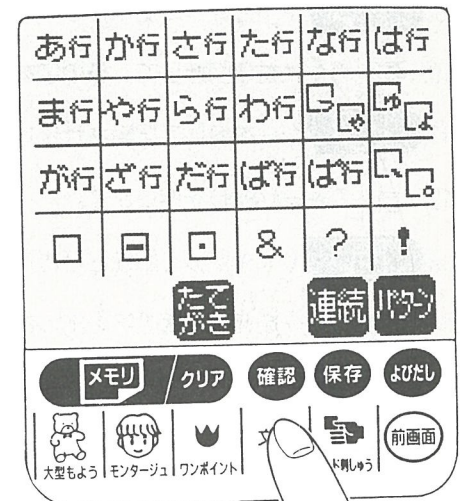 あ行 か行 さ行 た行 な行 は行
ま行 や行 ら行 わ行 っ ゃ ゅ ょ
が行 ざ行 だ行 ば行 ぱ行 、 。
& ? !
たてがき 連続 パタン
メモリ クリア 確認 保存 よびだし
大型もよう モンタージュ ワンポイント 刺しゅう 前画面